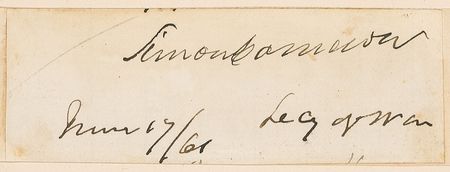 Simon Cameron
June 17/61 Secy of War